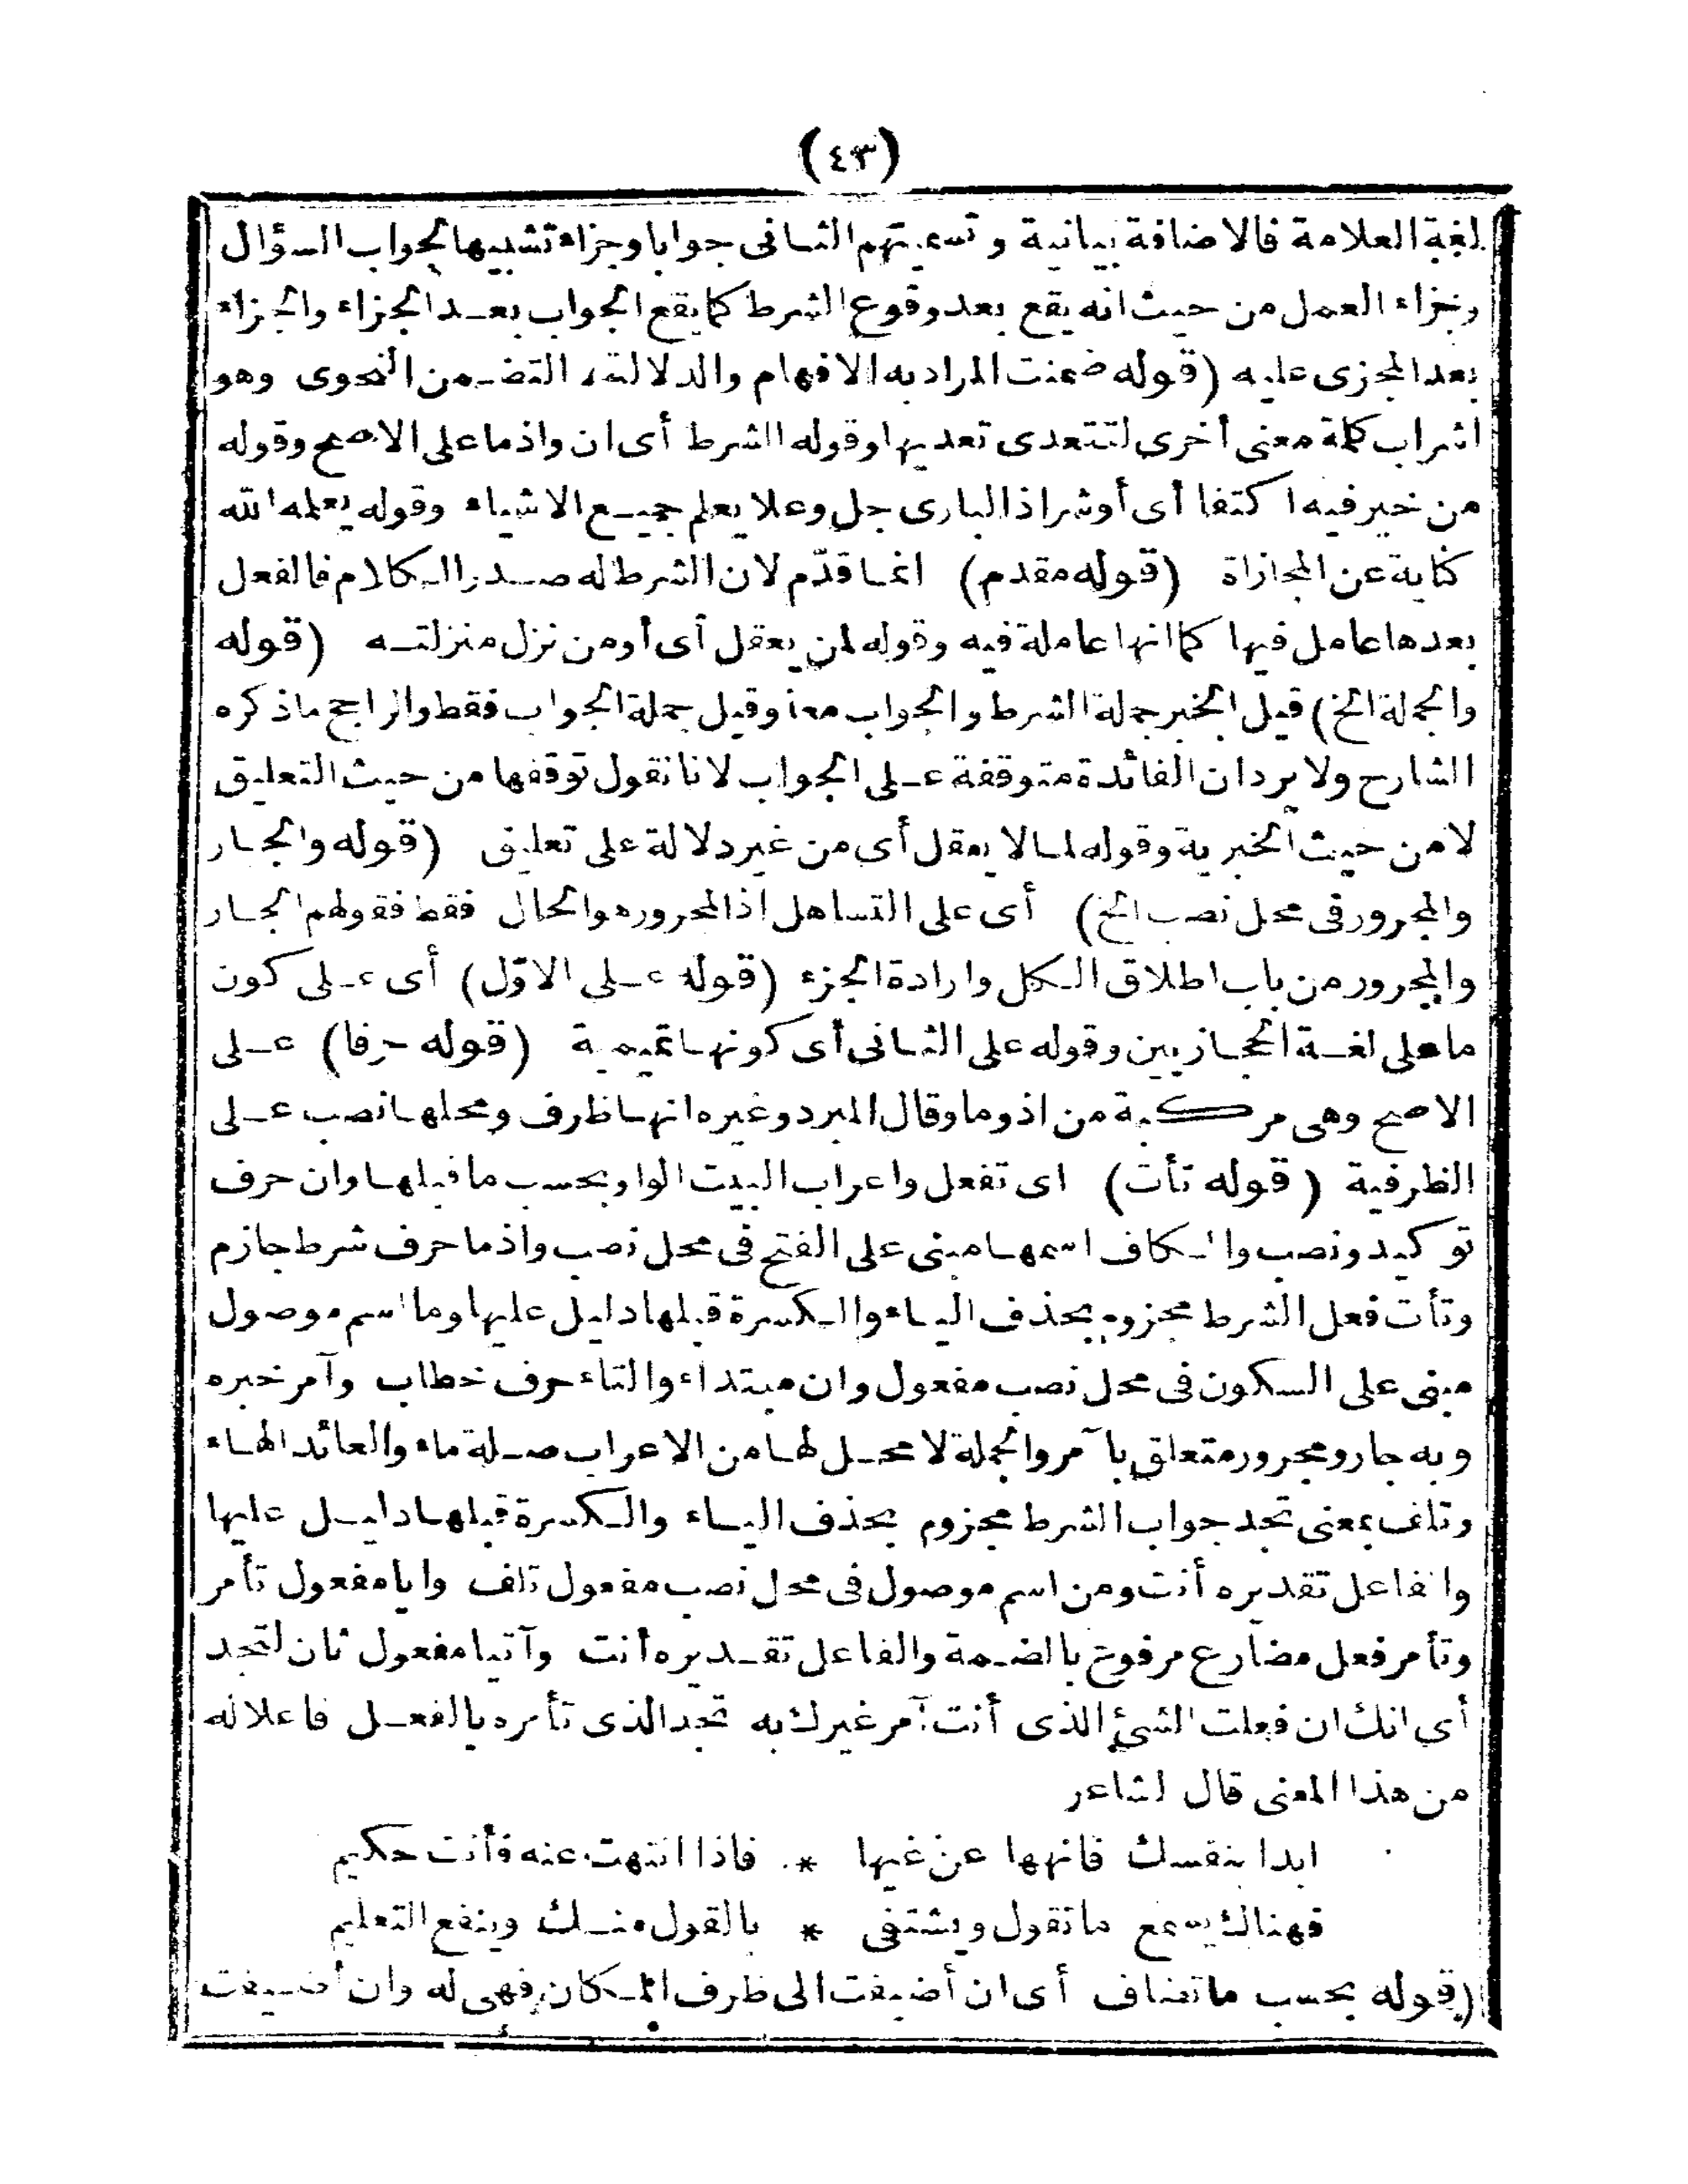 (٤٣)
لغة العلامة فالاضافة بيانية وتسميتهم الثانى جوابا وجزاء تشبيها بجواب السؤال
وجزاء العمل من حيث انه يقع بعد وقوع الشرط كما يقع الجواب بعد الجزاء والجزاء
بعد المجزى عليه (قوله ضمنت المراد به الافهام والدلالة، التضمن النحوى وهو
اشراب كلمة معنى أخرى لتتعدى تعديها وقوله الشرط أى ان واذما على الاصح وقوله
من خير فيه اكتفا أى أوشر اذ البارى جل وعلا يعلم جميع الاشياء وقوله يعلمه الله
كناية عن المجازاة (قوله مقدم) انما قدّم لان الشرط له صدر الكلام فالفعل
بعدها عامل فيها كما انها عاملة فيه وقوله لمن يعقل أى أو من نزل منزلته (قوله
والجملة الخ) قيل الخبر جملة الشرط والجواب معا وقيل جملة الجواب فقط والراجح ماذكره
الشارح ولا يرد ان الفائدة متوقفة على الجواب لانا نقول توقفها من حيث التعليق
لامن حيث الخبرية وقوله لما لا يعقل أى من غير دلالة على تعليق (قوله والجار
والمجرور فى محل نصب الخ) أى على التساهل اذ المجرور هو الحال فقط فقولهم الجار
والمجرور من باب اطلاق الكل وارادة الجزء (قوله على الاوّل) أى على كون
ما على لغة الحجازيين وقوله على الثانى أى كونها تميمية (قوله حرفا) على
الاصح وهى مركبة من اذ وما وقال المبرد وغيره انها ظرف ومحلها نصب على
الظرفية (قوله تأت) اى تفعل واعراب البيت الواو بحسب ما قبلها وان حرف
توكيد ونصب والكاف اسمها مبنى على الفتح فى محل نصب واذما حرف شرط جازم
وتأت فعل الشرط مجزوم بحذف الياء والكسرة قبلها دليل عليها وما اسم موصول
مبنى على السكون فى محل نصب مفعول وان مبتداء والتاء حرف خطاب وآمر خبره
وبه جار ومجرور متعلق بآمر والجملة لا محل لها من الاعراب صلة ماء والعائد الهاء
وتلف بمعنى تجد جواب الشرط مجزوم بحذف الياء والكسرة قبلها دليل عليها
والفاعل تقديره أنت ومن اسم موصول فى محل نصب مفعول تلف وايا مفعول تأمر
وتأمر فعل مضارع مرفوع بالضمة والفاعل تقديره أنت وآتيا مفعول ثان لتجد
أى انك ان فعلت الشئ الذى أنت آمر غيرك به تجد الذى تأمره بالفعل فاعلا له
من هذا المعنى قال لشاعر
ابدا بنفسك فانهها عن غيها * فاذا انتهت عنه فأنت حكيم
فهناك يسمع ما تقول ويشتفى * بالقول منك وينفع التعليم
(قوله بحسب ما تضاف أى ان أضيفت الى ظرف المكان فهى له وان أضيفت